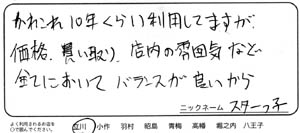 かれこれ10年くらい利用してますが、
価格、買い取り、店内の雰囲気など
全てにおいて バランスが良いから
ニックネーム スターっ子
よく利用されるお店を
○で囲んでください。
立川 小作 羽村 昭島 青梅 高幡 堀之内 八王子